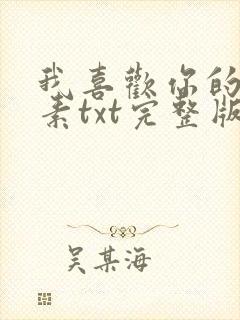 我喜歡你的
素txt完整版
吴某海